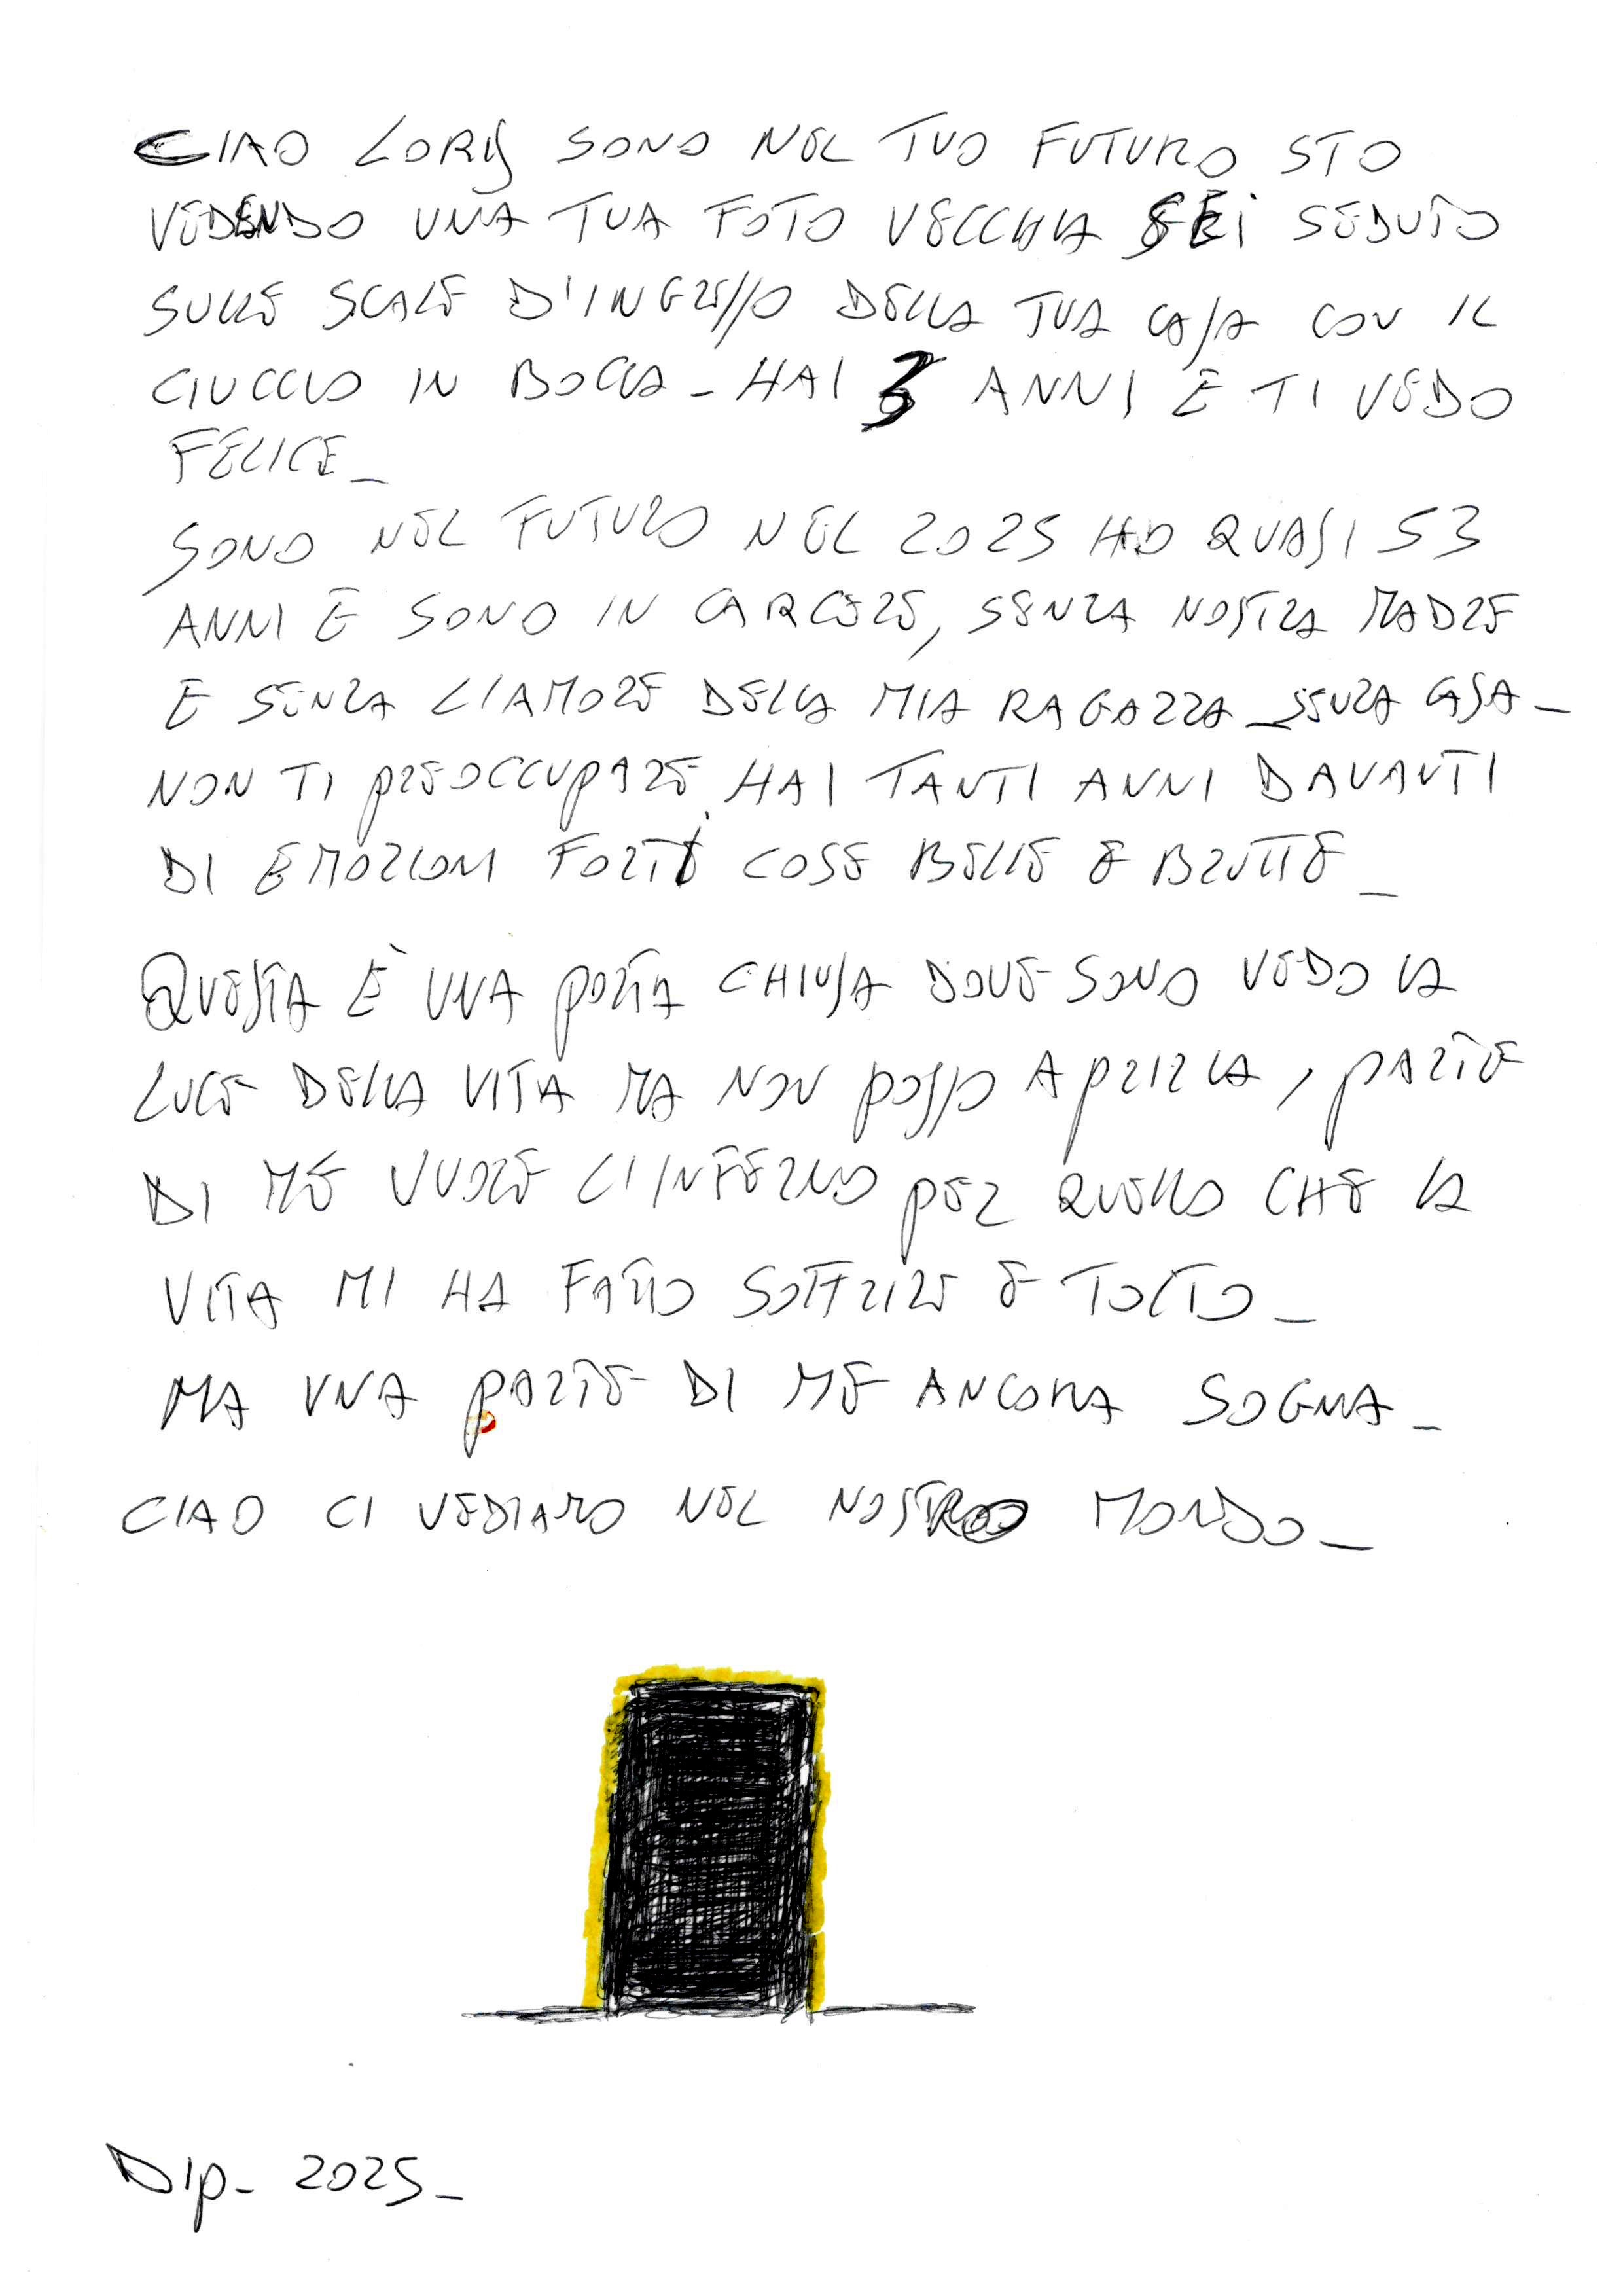 CIAO LORIS SONO NEL TUO FUTURO STO
VEDENDO UNA TUA FOTO VECCHIA SEI SEDUTO
SULLE SCALE D'INGRESSO DELLA TUA CASA CON IL
CIUCCIO IN BOCCA - HAI 3 ANNI E TI VEDO
FELICE_
SONO NEL FUTURO NEL 2025 HO QUASI 53
ANNI E SONO IN CARCERE, SENZA NOSTRA MADRE
E SENZA L'AMORE DELLA MIA RAGAZZA _ SENZA CASA _
NON TI PREOCCUPARE, HAI TANTI ANNI DAVANTI
DI EMOZIONI FORTI COSE BELLE E BRUTTE _
QUESTA È UNA PORTA CHIUSA DOVE SONO VEDO LA
LUCE DELLA VITA MA NON POSSO APRIRLA, PARTE
DI ME VUOLE L'INFERNO PER QUELLO CHE LA
VITA MI HA FATTO SOFFRIRE E TOLTO _
MA UNA PARTE DI ME ANCORA SOGNA _
CIAO CI VEDIAMO NEL NOSTRO MONDO _
DIP_ 2025_